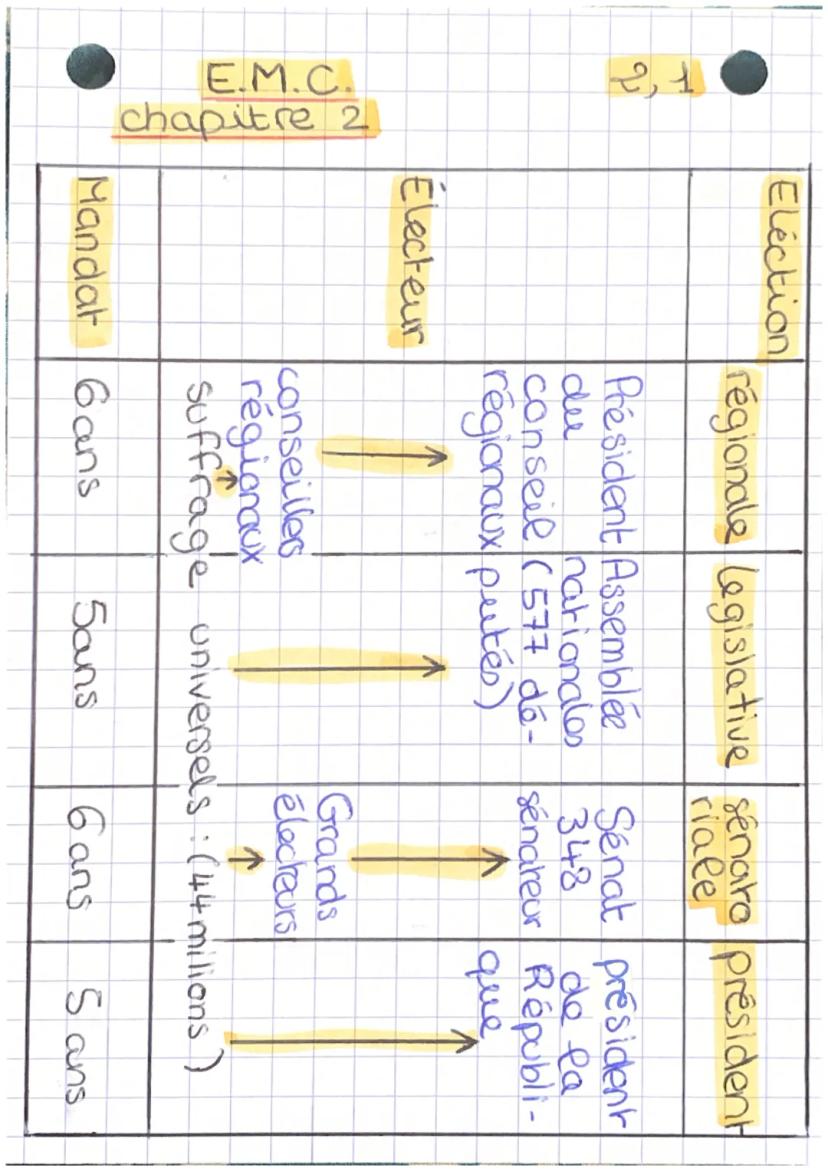 E.M.C.
chapitre 2
2,1
Eléction
régionale
législative
sénato
riale
président
Électeur
Président
du
conseil
régionaux
Assemblée
nationales
(577 dé-
putés)
Sénat
348
sénateur
président
de la
Républi-
que
conseillers
régionaux
Grands
électeurs
suffrage universels : (44 millions)
Mandat
6 ans
5 ans
6 ans
5 ans